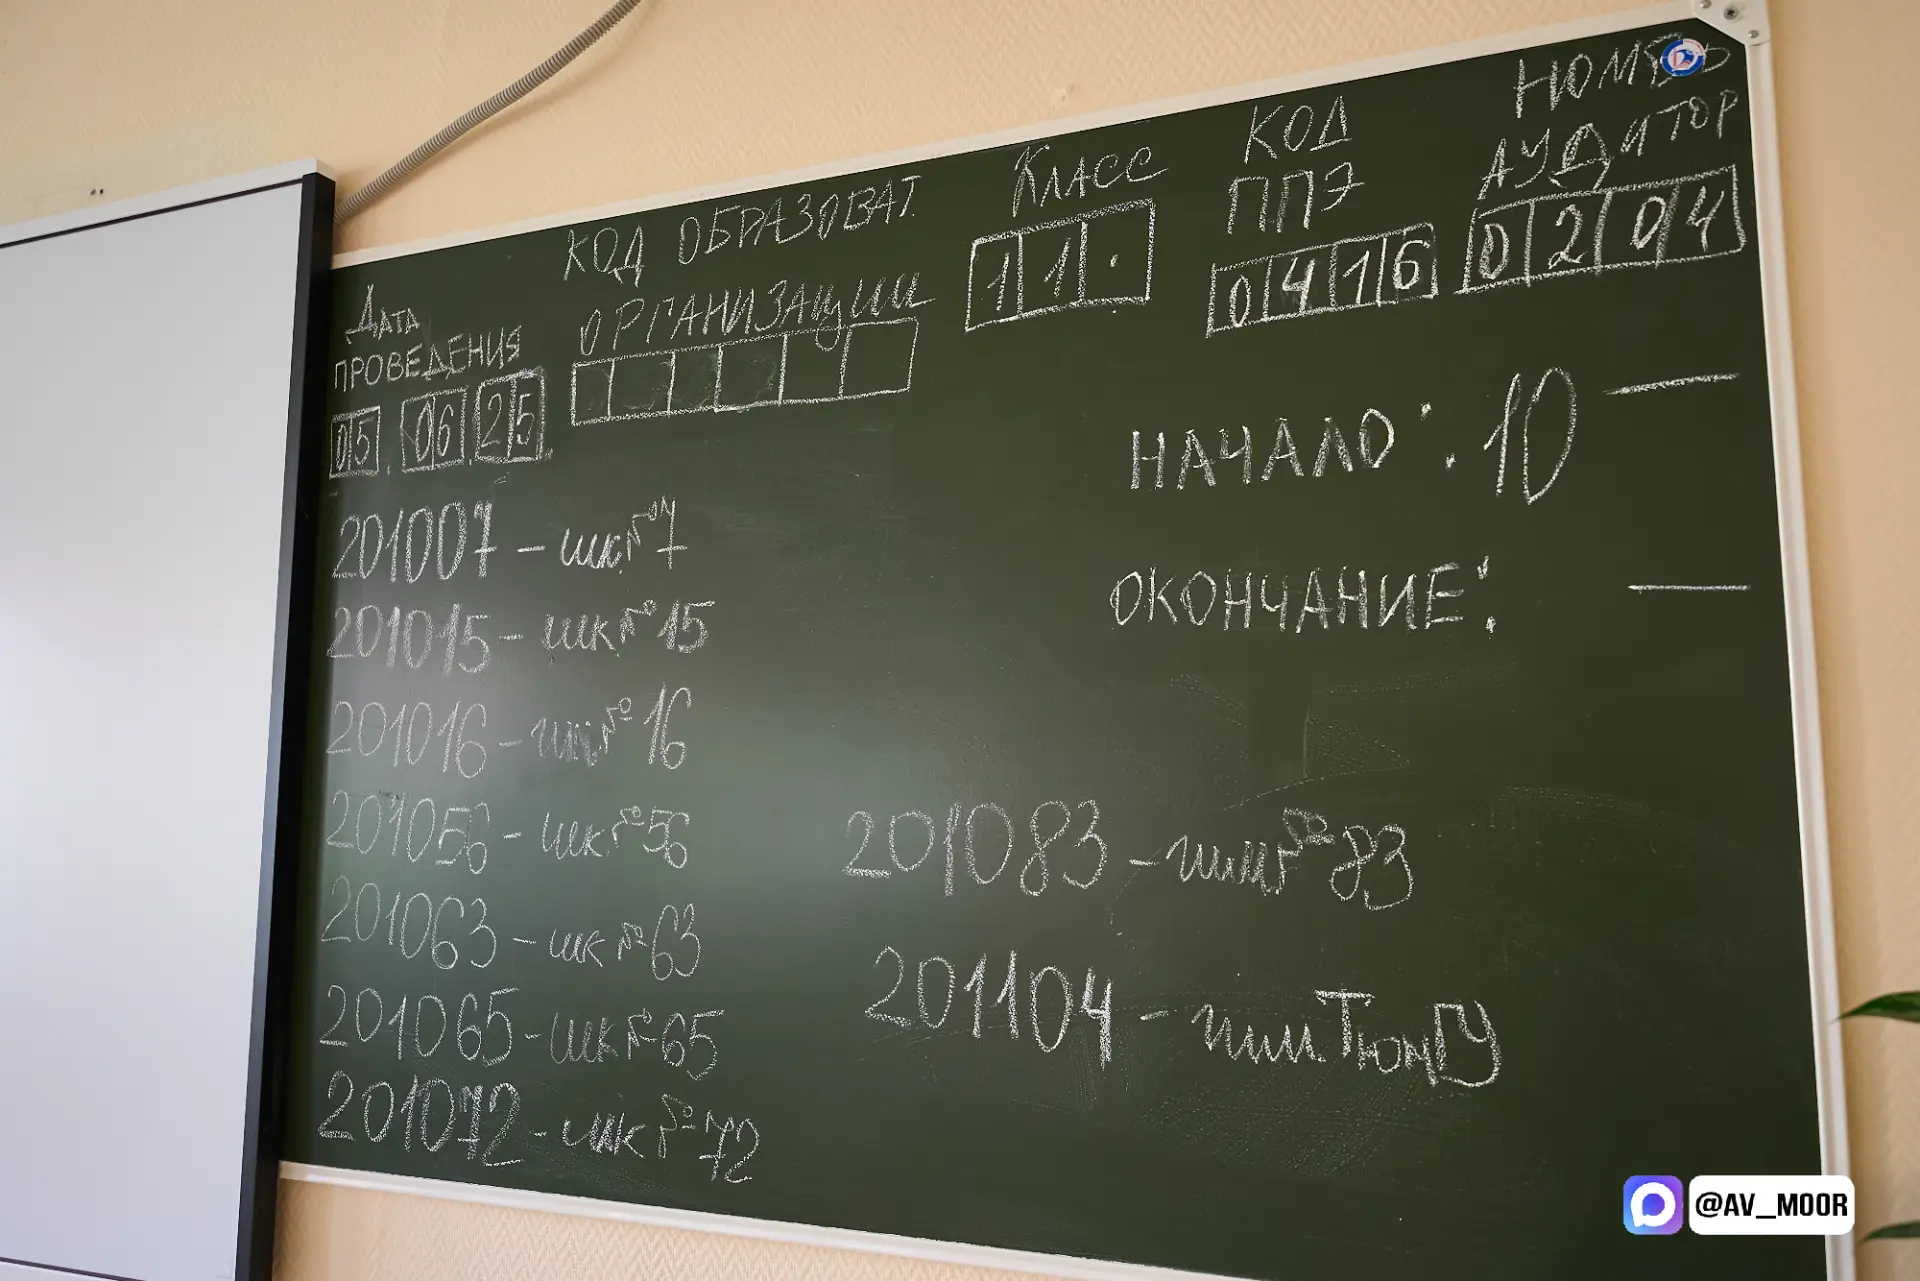 Дата
ПРОВЕДЕНИЯ
05.06.25.
КОД ОБРАЗОВАТ.
ОРГАНИЗАЦИИ
Класс
11.
КОД
ППЭ
0416
АУДИТОР
0204
НАЧАЛО: 10
ОКОНЧАНИЕ:
201007 - шк№7
201015 - шк№15
201016 - шк№16
201056 - шк№56
201063 - шк№63
201065 - шк№65
201072 - шк№72
201083 - гимн№83
201104 - гим.ТюмГУ
@AV_MOOR